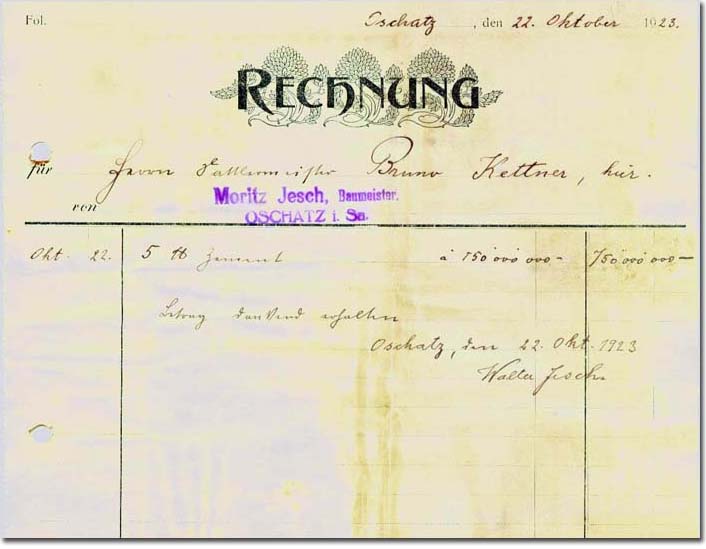 Fol. Oschatz, den 22. Oktober 1923.
RECHNUNG
für Herrn Sattlermeister Bruno Kettner, hier.
Moritz Jesch, Baumeister.
von OSCHATZ i. Sa.
Okt. 22. 5 ℔ Zement à 150 000 000 – 750 000 000 –
Betrag dankend erhalten
Oschatz, den 22. Okt. 1923
Walter Jesch